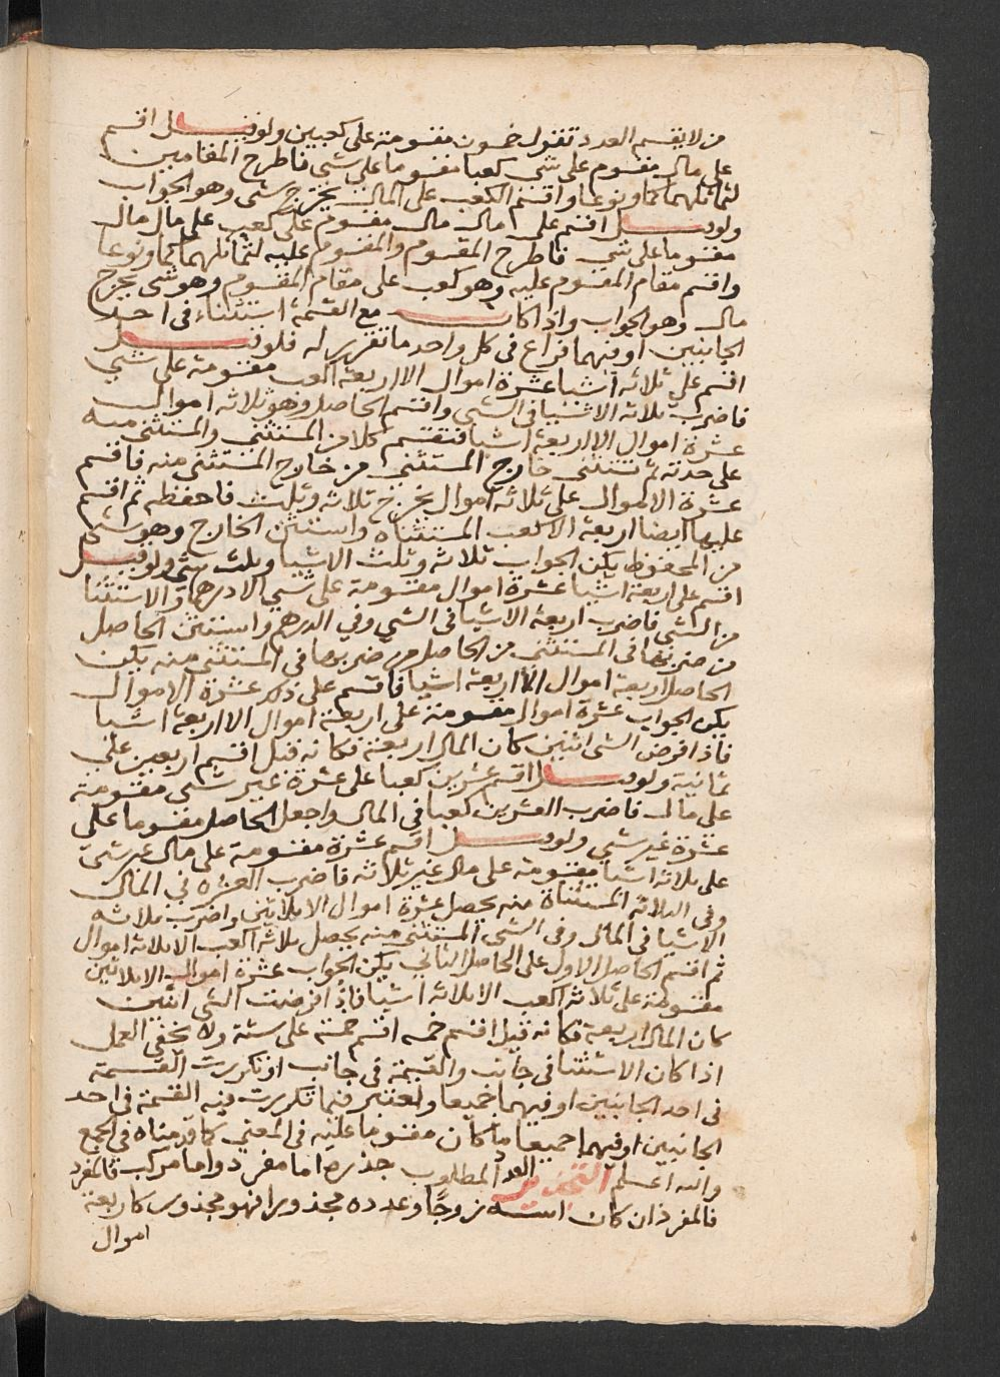 من لا يقسم العدد تقول خمسون مقسومة على كعبين ولو قيل اقسم
على مال مقسوم على شى كعبا مقسوما على شى فاطرح المقامين
لتماثلهما كما ونوعا واقسم الكعب على المال يخرج شى وهو الجواب
ولو قيل اقسم على مال مال مقسوم على كعب على مال مال
مقسوما على شى فاطرح المقسوم والمقسوم عليه لتماثلهما كما ونوعا
واقسم مقام المقسوم عليه وهو كعب على مقام المقسوم وهو شى يخرج
مال وهو الجواب واذا كان مع القسمة استثناء فى احد
الجانبين او فيهما فراع فى كل واحد ما تقرر له فلو قيل
اقسم على ثلاثة اشيا عشرة اموال الا اربعة اكعب مقسومة على شى
فاضرب ثلاثة الاشيا فى الشى واقسم الحاصل وهو ثلاثة اموال
عشرة اموال الا اربعة اشيا فتقسم كلا من المستثنى والمستثنى منه
على حدته ثم تستثنى خارج المستثنى من خارج المستثنى منه فاقسم
عشرة الاموال على ثلاثة اموال يخرج ثلاثة وثلث فاحفظه ثم اقسم
عليها ايضا اربعة الاكعب المستثناه واستثن الخارج وهو شى
من المحفوظ يكن الجواب ثلاثة وثلث الا شيا وثلث شى ولو قيل
اقسم على اربعة اشيا عشرة اموال مقسومة على شى الا درهما والاستثنا
من الشى فاضرب اربعة الاشيا فى الشى وفى الدرهم واستثن الحاصل
من ضربها فى المستثنى من الحاصل من ضربها فى المستثنى منه يكن
الحاصل اربعة اموال الا اربعة اشيا فاقسم على ذلك عشرة الاموال
يكن الجواب عشرة اموال مقسومة على اربعة اموال الا اربعة اشيا
فاذا فرض الشى اثنين كان المال اربعة فكانه قيل اقسم اربعين على
ثمانية ولو قيل اقسم عشرين كعبا على عشرة غير شى مقسومة
على مال فاضرب العشرين كعبا فى المال واجعل الحاصل مقسوما على
عشرة غير شى ولو قيل اقسم عشرة مقسومة على مال غير شى
على ثلاثة اشيا مقسومة على مال غير ثلاثة فاضرب العشرة فى المال
وفى الثلاثة المستثناة منه يحصل عشرة اموال الا ثلاثين واضرب ثلاثة
الاشيا فى المال وفى الشى المستثنى منه يحصل ثلاثة اكعب الا ثلاثة اموال
ثم اقسم الحاصل الاول على الحاصل الثانى يكن الجواب عشرة اموال الا ثلاثين
مقسومة على ثلاثة اكعب الا ثلاثة اشيا فاذا فرضت الشى اثنين
كان المال اربعة فكانه قيل اقسم خمسة اقسم خمسة على ستة ولا يخفى العمل
اذا كان الاستثنا فى جانب والقسمة فى جانب او تكررت القسمة
فى احد الجانبين او فيهما جميعا ولعتبر فيما تكررت فيه القسمة فى احد
الجانبين او فيهما جميعا ما كان مقسوما عليه فى المعنى كما قدمناه فى الجمع
والله اعلم التجذير العدد المطلوب جذره اما مفرد واما مركب فالمفرد
فالمفرد ان كان اسه زوجا وعدده مجذورا فهو مجذور كاربعة
اموال